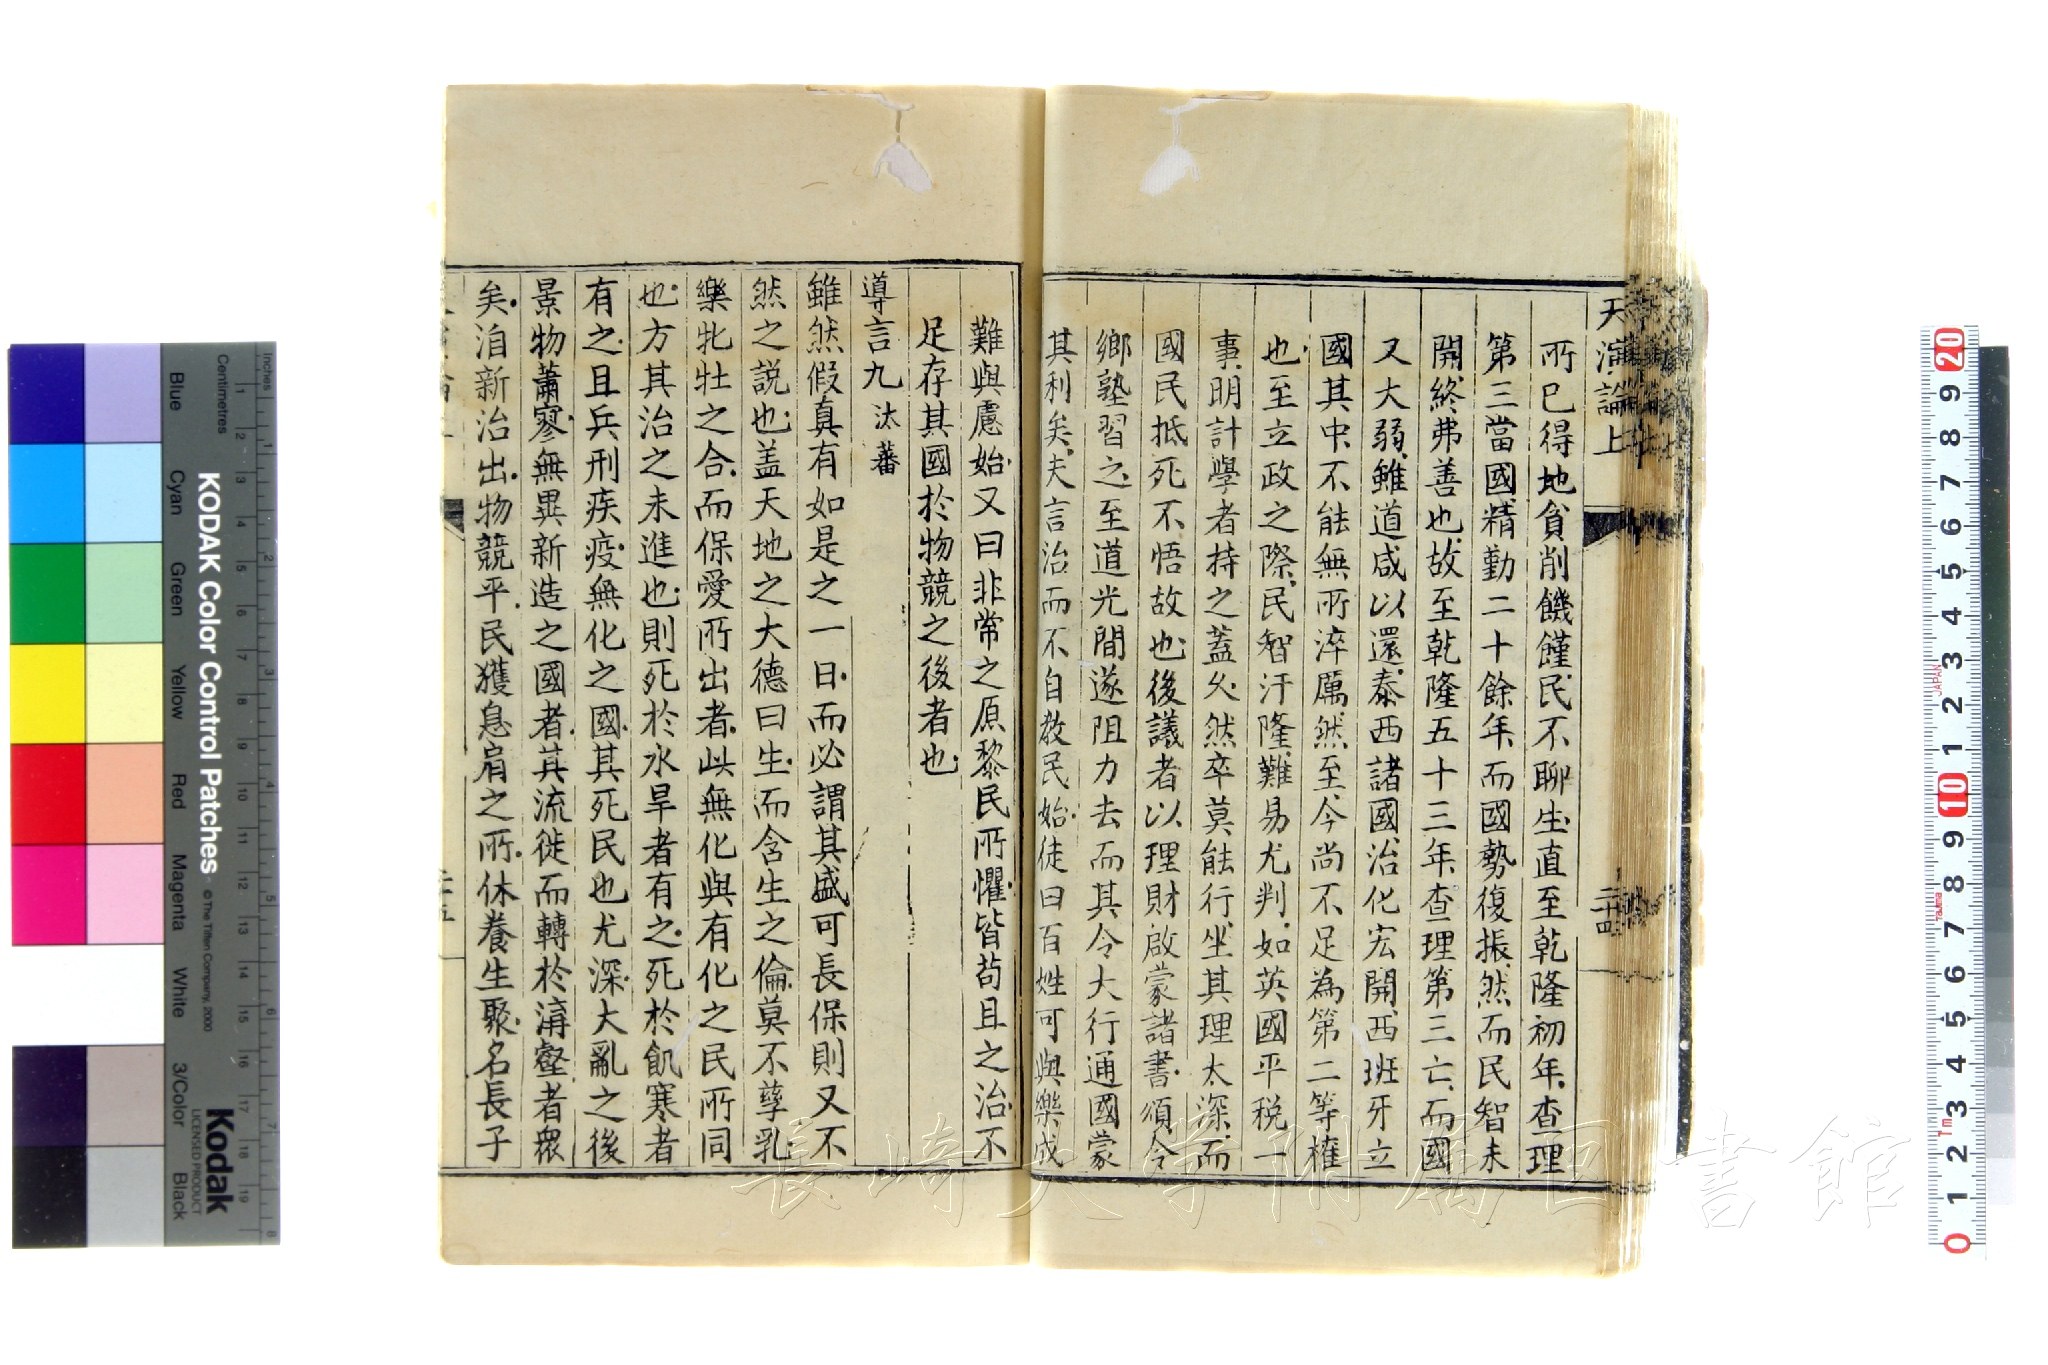 天演論上
二十四
所已得地貧削饑饉民不聊生直至乾隆初年查理
第三當國精勤二十餘年而國勢復振然而民智未
開終弗善也故至乾隆五十三年查理第三亡而國
又大弱雖道咸以還泰西諸國治化宏開西班牙立
國其中不能無所淬厲然至今尚不足為第二等權
也至立政之際民智汙隆難易尤判如英國平税一
事明計學者持之蓋久然卒莫能行坐其理太深而
國民抵死不悟故也後議者以理財啟蒙諸書頒令
鄉塾習之至道光間遂阻力去而其令大行通國蒙
其利矣夫言治而不自教民始徒曰百姓可與樂成
難與慮始又曰非常之原黎民所懼皆苟且之治不
足存其國於物競之後者也
導言九 汰蕃
雖然假真有如是之一日而必謂其盛可長保則又不
然之説也盖天地之大德曰生而含生之倫莫不孳乳
樂牝牡之合而保愛所出者此無化與有化之民所同
也方其治之未進也則死於水旱者有之死於飢寒者
有之且兵刑疾疫無化之國其死民也尤深大亂之後
景物蕭寥無異新造之國者其流徙而轉於溝壑者衆
矣洎新治出物競平民獲息肩之所休養生聚名長子
二十五
長崎大学附属図書館
KODAK Color Control Patches
© The Tiffen Company, 2000
Kodak
LICENSED PRODUCT
Inches
Centimetres
Blue
Cyan
Green
Yellow
Red
Magenta
White
3/Color
Black
1 2 3 4 5 6 7 8
1 2 3 4 5 6 7 8 9 10 11 12 13 14 15 16 17 18 19
20 9 8 7 6 5 4 3 2 1 10 9 8 7 6 5 4 3 2 1 0
JAPAN
Tajima